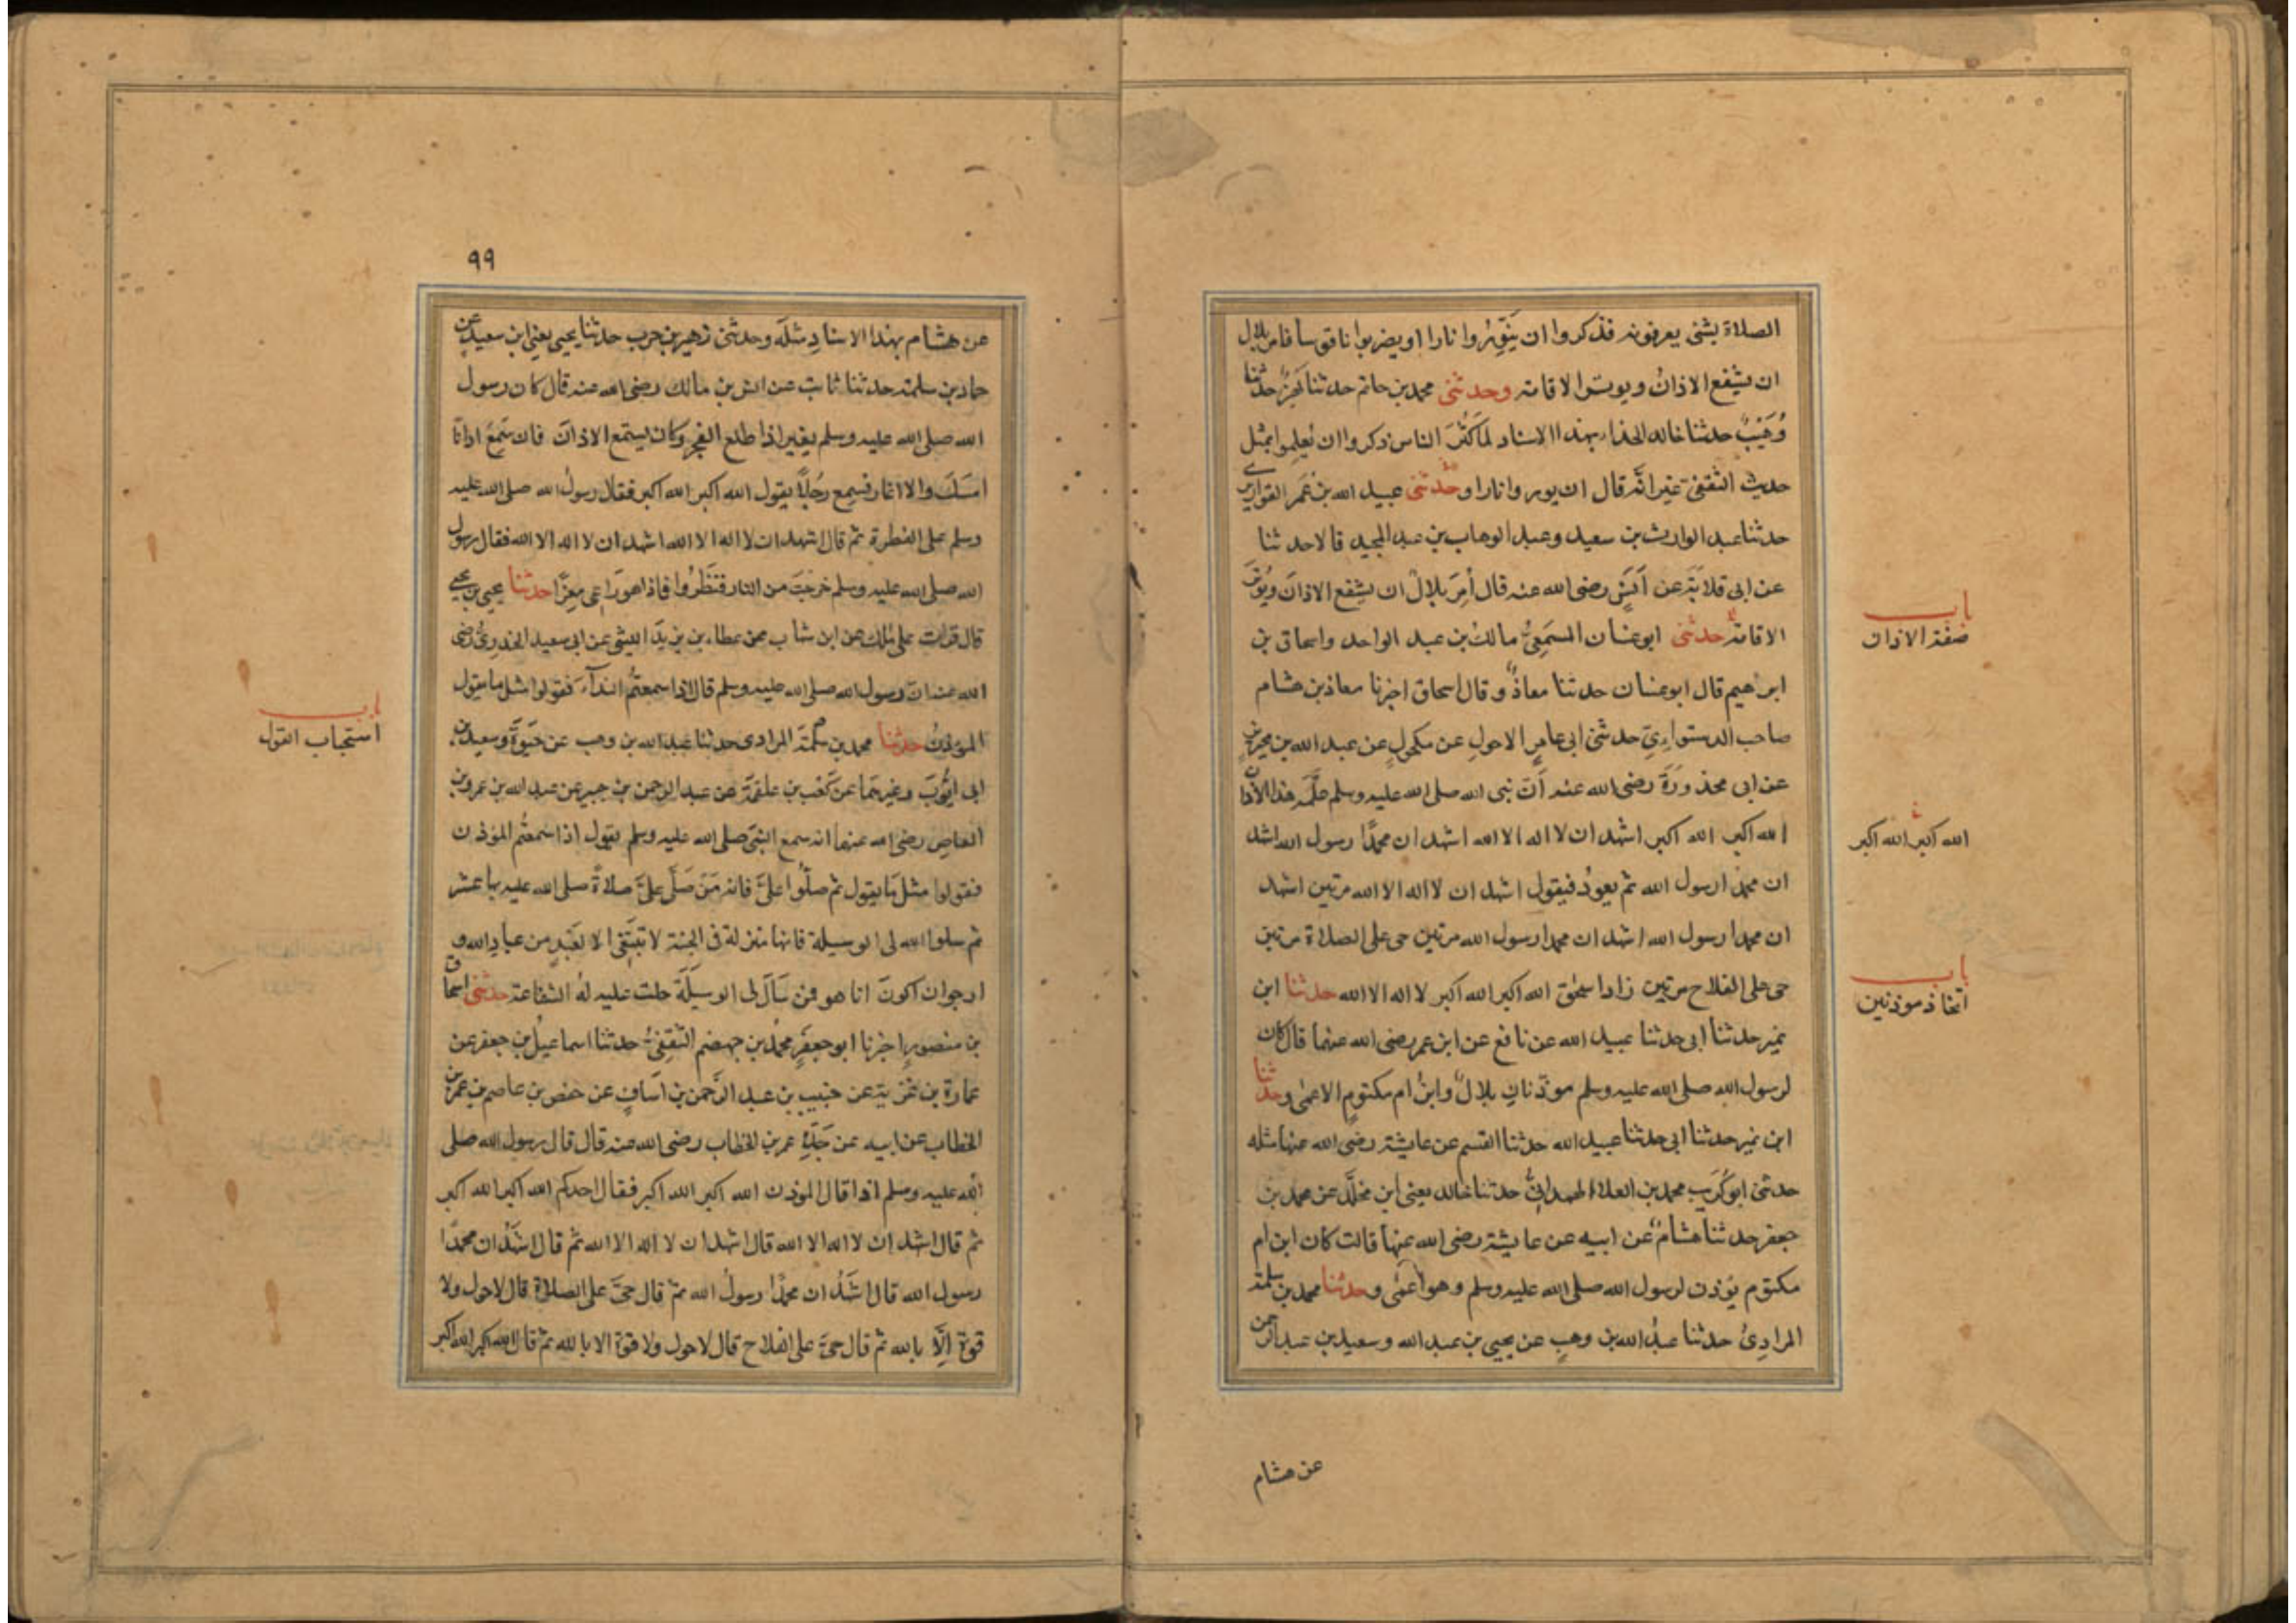 الصلاة بشئ يعرفونه فذكروا ان ينوروا نارا او يضربوا ناقوسا فامر بلال
ان يشفع الاذان ويوتر الاقامة وحدثنى محمد بن حاتم حدثنا بهز حدثنا
وهيب حدثنا خالد الحذاء بهذا الاسناد لما كثر الناس ذكروا ان يعلموا بمثل
حديث الثقفى غير انه قال ان يوروا نارا وحدثنى عبيد الله بن عمر القواريرى
حدثنا عبد الوارث بن سعيد وعبد الوهاب بن عبد المجيد قالا حدثنا
عن ابى قلابة عن انس رضى الله عنه قال امر بلال ان يشفع الاذان ويوتر
الاقامة حدثنى ابو غسان المسمعى مالك بن عبد الواحد واسحاق بن
ابرهيم قال ابو غسان حدثنا معاذ وقال اسحاق اخبرنا معاذ بن هشام
صاحب الدستواءى حدثنى ابى عامر الاحول عن مكحول عن عبد الله بن محيريز
عن ابى محذورة رضى الله عنه ان نبى الله صلى الله عليه وسلم علمه هذا الاذان
الله اكبر الله اكبر اشهد ان لا اله الا الله اشهد ان محمدا رسول الله اشهد
ان محمدا رسول الله ثم يعود فيقول اشهد ان لا اله الا الله مرتين اشهد
ان محمدا رسول الله اشهد ان محمدا رسول الله مرتين حى على الصلاة مرتين
حى على الفلاح مرتين زاد اسحق الله اكبر الله اكبر لا اله الا الله حدثنا ابن
نمير حدثنا ابى حدثنا عبيد الله عن نافع عن ابن عمر رضى الله عنهما قال كان
لرسول الله صلى الله عليه وسلم موذنان بلال وابن ام مكتوم الاعمى وحدثنا
ابن نمير حدثنا ابى حدثنا عبيد الله حدثنا القسم عن عايشة رضى الله عنها مثله
حدثنى ابو كريب محمد بن العلاء الهمدانى حدثنا خالد يعنى ابن مخلد عن محمد بن
جعفر حدثنا هشام عن ابيه عن عايشة رضى الله عنها قالت كان ابن ام
مكتوم يؤذن لرسول الله صلى الله عليه وسلم وهو اعمى وحدثنا محمد بن سلمة
المرادى حدثنا عبد الله بن وهب عن يحيى بن عبد الله وسعيد بن عبد الرحمن
عن هشام
باب
صفة الاذان
الله اكبر الله اكبر
باب
اتخاذ موذنين
٩٩
عن هشام بهذا الاسناد مثله وحدثنى زهير بن حرب حدثنا يحيى يعنى ابن سعيد عن
حماد بن سلمة حدثنا ثابت عن انس بن مالك رضى الله عنه قال كان رسول
الله صلى الله عليه وسلم يغير اذا طلع الفجر وكان يستمع الاذان فان سمع اذانا
امسك والا اغار فسمع رجلا يقول الله اكبر الله اكبر فقال رسول الله صلى الله عليه
وسلم على الفطرة ثم قال اشهد ان لا اله الا الله اشهد ان لا اله الا الله فقال رسول
الله صلى الله عليه وسلم خرجت من النار فنظروا فاذا هو راعى معزا حدثنا يحيى بن يحيى
قال قرات على ملك عن ابن شهاب عن عطاء بن يزيد الليثى عن ابى سعيد الخدرى رضى
الله عنه ان رسول الله صلى الله عليه وسلم قال اذا سمعتم النداء فقولوا مثل ما يقول
المؤذن حدثنا محمد بن سلمة المرادى حدثنا عبد الله بن وهب عن حيوة وسعيد بن
ابى ايوب وغيرهما عن كعب بن علقمة عن عبد الرحمن بن جبير عن عبد الله بن عمرو بن
العاص رضى الله عنهما انه سمع النبى صلى الله عليه وسلم يقول اذا سمعتم المؤذن
فقولوا مثل ما يقول ثم صلوا على فانه من صلى على صلاة صلى الله عليه بها عشر
ثم سلوا الله لى الوسيلة فانها منزلة فى الجنة لا تبتغى الا لعبد من عباد الله و
ارجو ان اكون انا هو فمن سال لى الوسيلة حلت عليه له الشفاعة حدثنى اسحاق
بن منصور اخبرنا ابو جعفر محمد بن جهضم الثقفى حدثنا اسماعيل بن جعفر عن
عمارة بن غزية عن خبيب بن عبد الرحمن بن اساف عن حفص بن عاصم بن عمر بن
الخطاب عن ابيه عن جده عمر بن الخطاب رضى الله عنه قال قال رسول الله صلى
الله عليه وسلم اذا قال المؤذن الله اكبر الله اكبر فقال احدكم الله اكبر الله اكبر
ثم قال اشهد ان لا اله الا الله قال اشهد ان لا اله الا الله ثم قال اشهد ان محمدا
رسول الله قال اشهد ان محمدا رسول الله ثم قال حى على الصلاة قال لا حول ولا
قوة الا بالله ثم قال حى على الفلاح قال لا حول ولا قوة الا بالله ثم قال الله اكبر الله اكبر
باب
استحباب القول